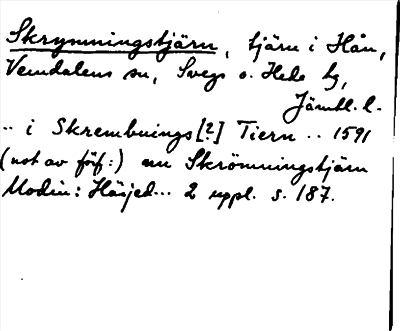 Skrymningstjärn, tjärn i Hån,
Vemdalens sn, Svegs o. Hede tg,
Jämtl. l.
.. i Skrembnings[?] Tiern .. 1591
(not av förf:) nu Skrömningstjärn
Modin: Härjed... 2 uppl. s. 187.